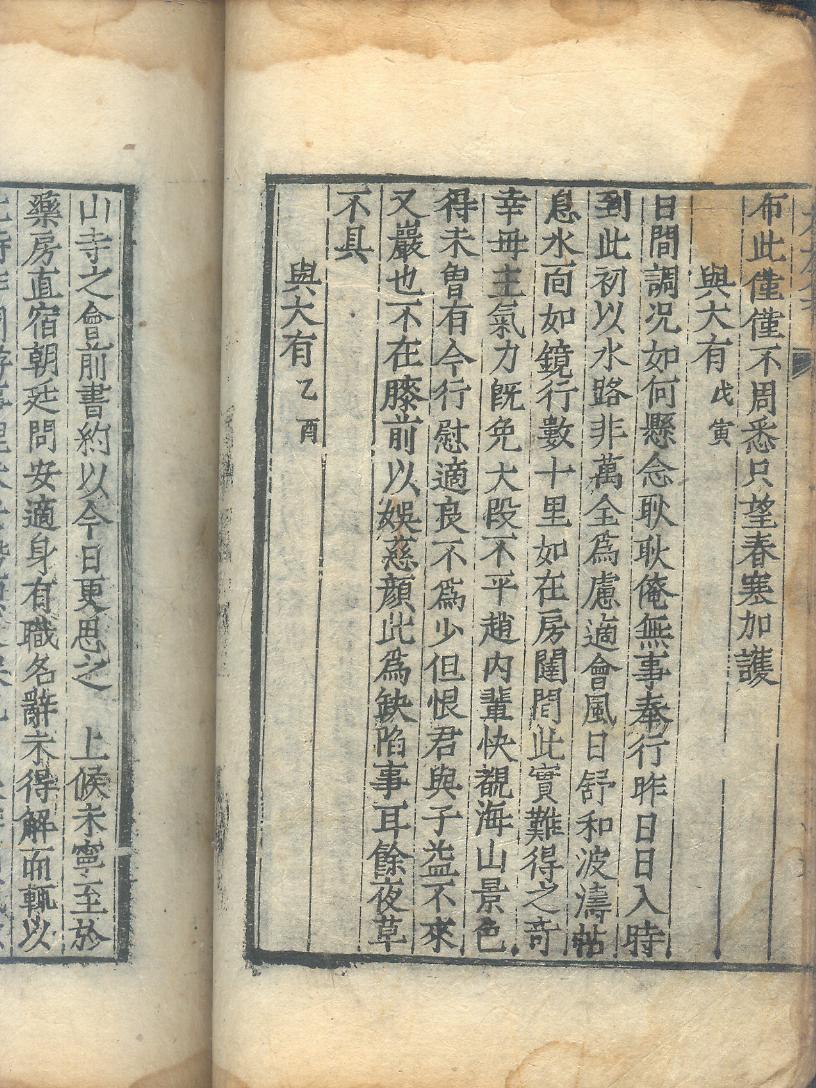 布此僅僅不周悉只望春寒加護
與大有 戊寅
日間調況如何懸念耿耿俺無事奉行昨日日入時
到此初以水路非萬全爲慮適會風日舒和波濤帖
息水面如鏡行數十里如在房闥間此實難得之奇
幸毋主氣力旣免大段不平趙內輩快覩海山景色
得未曾有今行慰適良不爲少但恨君與子益不來
又巖也不在膝前以娛慈顔此爲缺陷事耳餘夜草
不具
與大有 乙酉
山寺之會前書約以今日更思之 上候未寧至於
藥房直宿朝廷問安適身有職名辭未得解而輒以